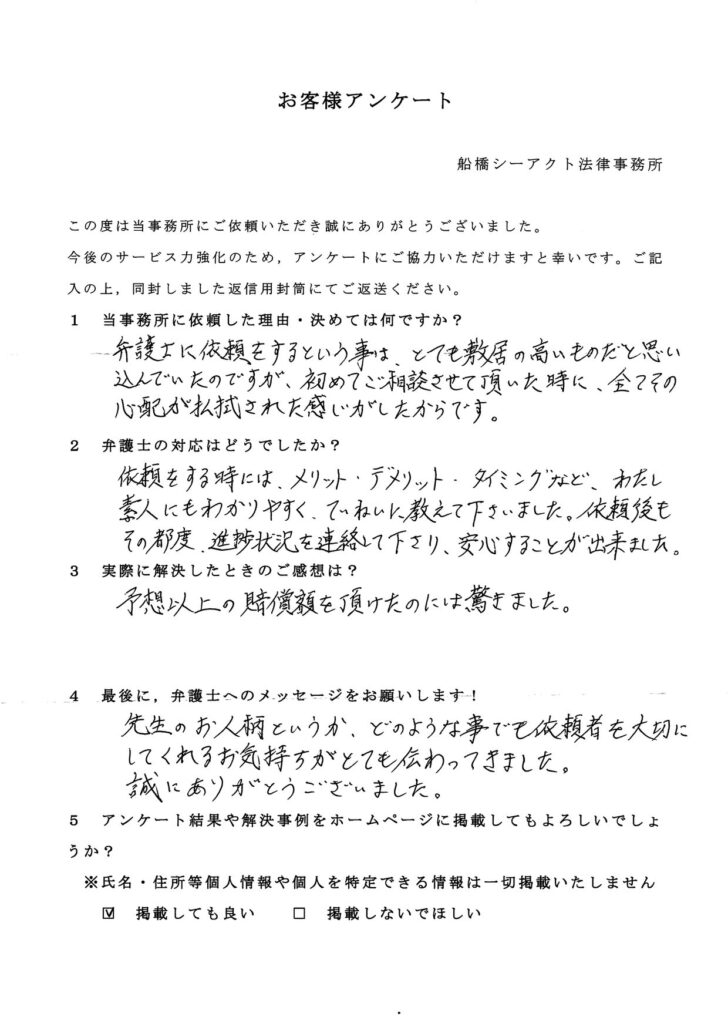 お客様アンケート
船橋シーアクト法律事務所
この度は当事務所にご依頼いただき誠にありがとうございました。
今後のサービス力強化のため，アンケートにご協力いただけますと幸いです。ご記
入の上，同封しました返信用封筒にてご返送ください。
1　当事務所に依頼した理由・決めては何ですか？
弁護士に依頼をするという事は、とても敷居の高いものだと思い
込んでいたのですが、初めてご相談させて頂いた時に、全てその
心配が払拭された感じがしたからです。
2　弁護士の対応はどうでしたか？
依頼をする時には、メリット・デメリット・タイミングなど、わたし
素人にもわかりやすく、ていねいに教えて下さいました。依頼後も
その都度、進捗状況を連絡して下さり、安心することが出来ました。
3　実際に解決したときのご感想は？
予想以上の賠償額を頂けたのには驚きました。
4　最後に，弁護士へのメッセージをお願いします！
先生のお人柄というか、どのような事でも依頼者を大切に
してくれるお気持ちがとても伝わってきました。
誠にありがとうございました。
5　アンケート結果や解決事例をホームページに掲載してもよろしいでしょ
うか？
※氏名・住所等個人情報や個人を特定できる情報は一切掲載いたしません
☑　掲載しても良い　　□　掲載しないでほしい